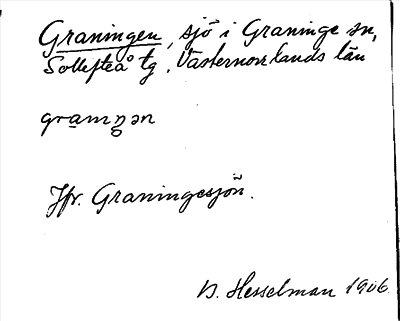 Graningen, sjö i Graninge sn,
Sollefteå tg, Västernorrlands län
Jfr. Graningesjön.
B. Hesselman 1906.